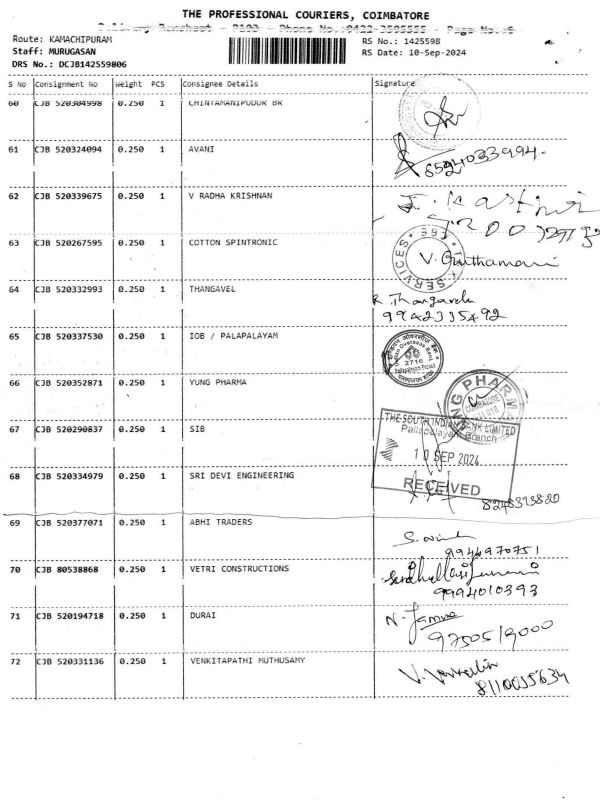 THE PROFESSIONAL COURIERS, COIMBATORE
Route: KAMACHIPURAM
Staff: MURUGASAN
DRS No.: DCJB142559806
RS No.: 1425598
RS Date: 10-Sep-2024
S No Consignment No Weight PCS Consignee Details Signature
60 CJB 520304998 0.250 1 CHINTAMANIPUDUR BR
61 CJB 520324094 0.250 1 AVANI
62 CJB 520339675 0.250 1 V RADHA KRISHNAN
63 CJB 520267595 0.250 1 COTTON SPINTRONIC
V.
SERVICES
64 CJB 520332993 0.250 1 THANGAVEL
R. Thangavelu
9942335492
65 CJB 520337530 0.250 1 IOB / PALAPALAYAM
Indian Overseas Bank
2716
66 CJB 520352871 0.250 1 YUNG PHARMA
YUNG PHARMA
COIMBATORE
67 CJB 520290837 0.250 1 SIB
THE SOUTH INDIAN BANK LIMITED
Branch
10 SEP 2024
RECEIVED
68 CJB 520334979 0.250 1 SRI DEVI ENGINEERING
69 CJB 520377071 0.250 1 ABHI TRADERS
9944970751
70 CJB 80538868 0.250 1 VETRI CONSTRUCTIONS
9994010393
71 CJB 520194718 0.250 1 DURAI
72 CJB 520331136 0.250 1 VENKITAPATHI MUTHUSAMY
8110055634